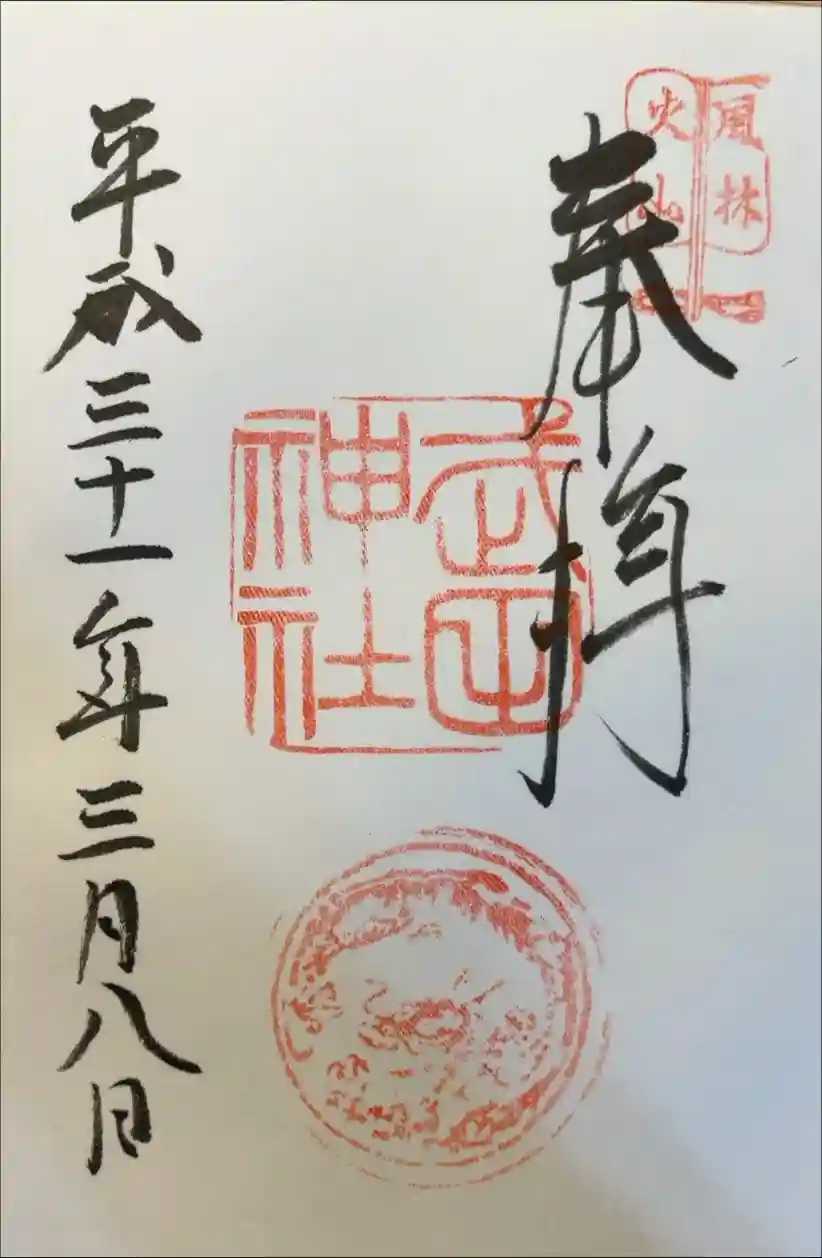 風林
火山
奉拝
武田
神社
平成三十一年三月八日